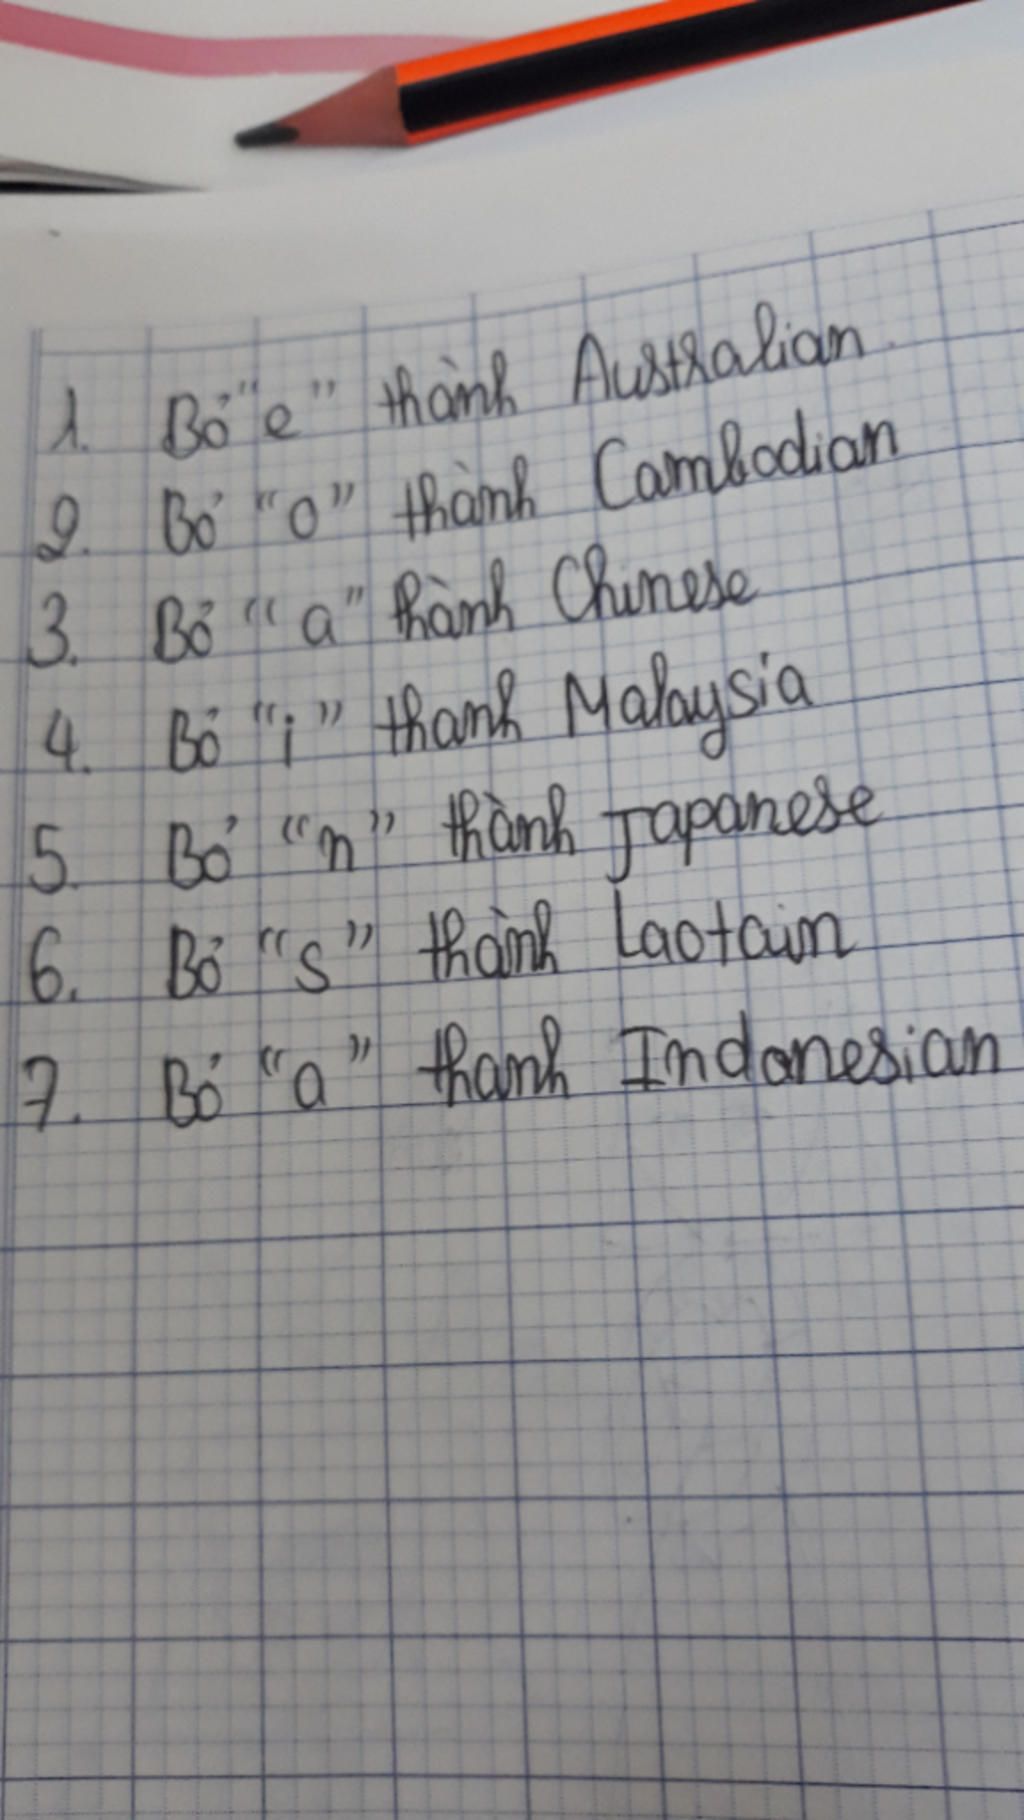 1. Bỏ "e" thành Australian
2. Bỏ "o" thành Cambodian
3. Bỏ "a" thành Chinese
4. Bỏ "i" thanh Malaysia
5. Bỏ "n" thành Japanese
6. Bỏ "s" thành Laotain
7. Bỏ "a" thanh Indonesian